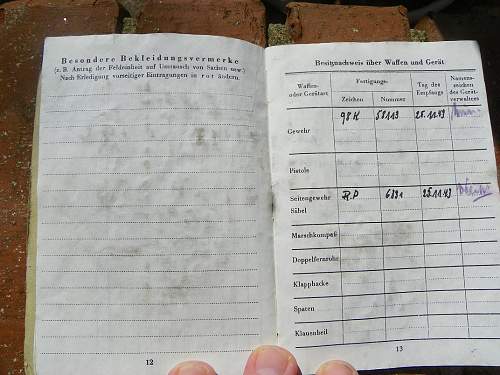 Besondere Bekleidungsvermerke
(z. B. Antrag der Feldeinheit auf Umtausch von Sachen usw.)
Nach Erledigung vorseitiger Eintragungen in rot ändern.
12
Besitznachweis über Waffen und Gerät
Waffen- oder Geräteart
Fertigungs-
Zeichen Nummer
Tag des Empfangs
Namens-zeichen des Gerät-verwalters
Gewehr 98 K 58119 25.11.43
Pistole
Seitengewehr R.P 6891 25.11.43
Säbel
Marschkompaß
Doppelfernrohr
Klapphacke
Spaten
Klauenbeil
13